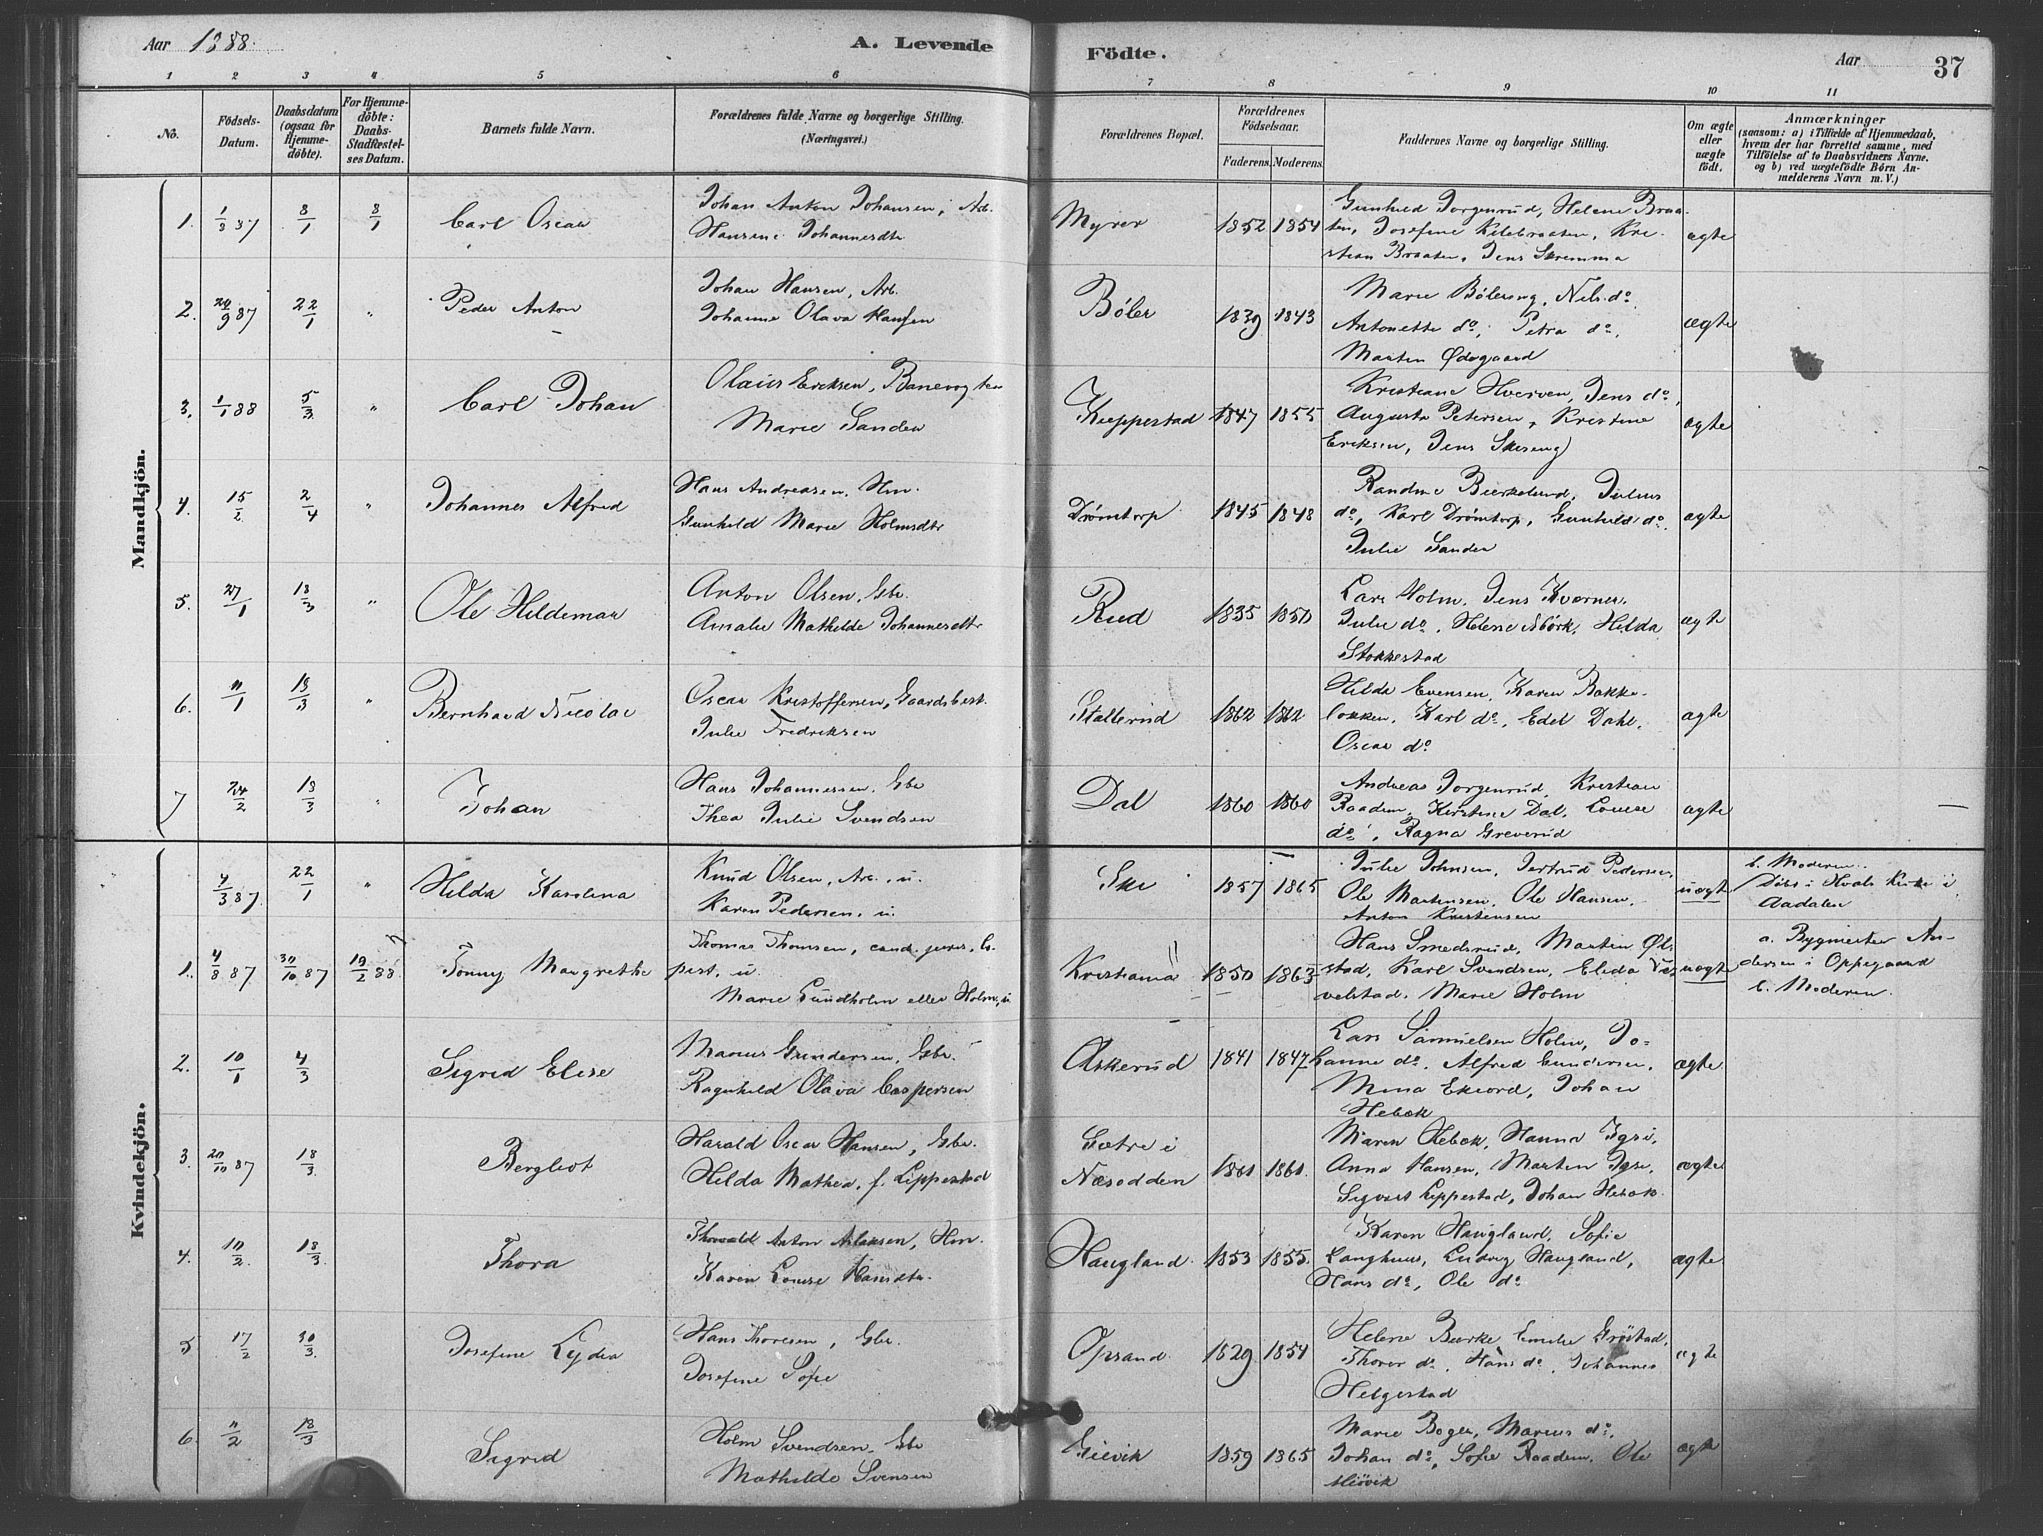 Aar 1888.
A. Levende
Födte.
Aar
37
1 2 3 4 5 6 7 8 9 10 11
No.
Födsels-Datum.
Daabsdatum (ogsaa for Hjemmedöbte).
For Hjemmedöbte: Daabs-Stadfæstelses Datum.
Barnets fulde Navn.
Forældrenes fulde Navne og borgerlige Stilling.
(Næringsvei.)
Forældrenes Bopæl.
Forældrenes Födselsaar.
Faderens. Moderens.
Faddernes Navne og borgerlige Stilling.
Om ægte eller uægte födt.
Anmærkninger
(saasom: a) i Tilfælde af Hjemmedaab,
hvem der har forrettet samme, med
Tilföielse af to Daabsvidners Navne.
og b) ved uægtefödte Börn An-
melderens Navn m. V.)
Mandkjön.
1. 1/3 87 8/1 8/1 Carl Oscar
Johan Anton Johansen, Arb.
Hansine Johannesdtr
Myrer 1852 1854
Gunhild Jorgenrud, Helene Braa-
ten, Josefine Kilebraaten, Kri-
stian Braaten, Jens Skremma
ægte
2. 24/9 87 22/1 " Peder Anton
Johan Hansen, Arb.
Johanne Olava Hansen
Böler 1839 1843
Marie Bölereng, Nils do
Antonette do, Petra do,
Marten Ødegaard
ægte
3. 1/1 88 5/3 " Carl Johan
Olaus Eriksen, Banevogter
Marie Sander
Kieppestad 1847 1855
Kristiane Hverven, Jens do,
Augusta Petersen, Kristine
Eriksen, Jens Skiseng
ægte
4. 15/2 2/4 " Johannes Alfred
Hans Andreasen, Hm.
Gunhild Marie Holmsdtr
Drömtorp 1845 1848
Randine Bierkelund, Julius
do, Karl Drömtorp, Gunhild do.
Julie Sander
ægte
5. 27/1 18/3 " Ole Hildemar
Anton Olsen, Gbr.
Amalie Mathilde Johannesdtr
Rud 1835 1850
Lars Holm, Jens Kverner,
Julie do, Helene Mörk, Hilda
Stokkestad
ægte
6. 11/1 18/3 " Bernhard Nicolai
Oscar Kristoffersen, Gaardsbest.
Julie Fredriksen
Stallerud 1862 1862
Hilda Evensen, Karen Bakke-
lokken, Karl do, Edel Dahl,
Oscar do
ægte
7 24/2 18/3 " Johan
Hans Johannessen, Gbr
Thea Julie Svendsen
Dal 1860 1860
Andreas Jorgenrud, Kristian
Raaden, Kirstine Dal, Louise
do, Ragna Greverud
ægte
Kvindekjön.
4/3 87. 22/1 " Hilda Karolina
Knud Olsen, Arb., u.
Karen Pedersen, u.
Ski 1857 1865
Julie Johnsen, Jertrud Pedersen,
Ole Martinsen, Ole Hansen,
Anton Kristensen
uægte
b. Moderen.
Döbt i Hvals Kirke i
Aadalen
1. 4/8 87 30/10 87 19/2 88 Fonny Margrethe
Thomas Thomsen, cand. juris,
Marie Lundholm eller Holm, u.
Kristiania 1850 1863
Hans Smedsrud, Marten Øl-
stad, Karl Svendsen, Elida
velstad, Marie Holm
uægte
a. Bygmester An-
dersen i Oppegaard
b. Moderen.
2. 10/1 4/3 Sigrid Elise
Marius Gundersen, Gbr.
Ragnhild Olava Caspersen
Askerud 1841 1847
Lars Samuelsen Holm, Jo-
hanne do, Alfred Gundersen,
Mina Ekiord, Johan
Hebæk
ægte
3. 20/10 87 18/3 Bergliot
Harald Oscar Hansen, Gbr.
Hilda Mathea, f. Lippestad
Sætre i
Næsodden 1861 1861.
Maren Hebæk, Hanna Igsi,
Anna Hansen, Marten Igsi,
Sigvart Lippestad, Johan Hebæk
ægte
4. 10/2. 18/3. Thora
Thorvald Anton Nilssen, Hm.
Karen Louise Hansdtr.
Haugland. 1853 1855.
Karen Haugland, Sofie
Langhuus, Ludvig Haugland,
Hans do, Ole do
ægte
5 17/2 30/3. Josefine Lydia
Hans Thoresen, Gbr.
Josefine Sofie
Opsand. 1829 1854
Helene Bierke, Emilie Gröstad,
Thorer do, Hans do, Johannes
Helgestad
ægte
6. 11/2 18/3 Sigrid
Holm Svendsen, Gbr
Mathilde Svensen
Gievik 1859 1865
Marie Boger, Marius do,
Johan do, Sofie Raaden, Ole
Miövik
ægte